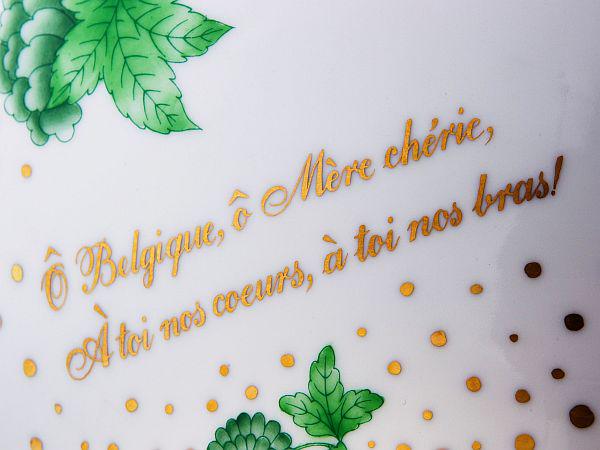 Ô Belgique, ô Mère chérie,
À toi nos coeurs, à toi nos bras!